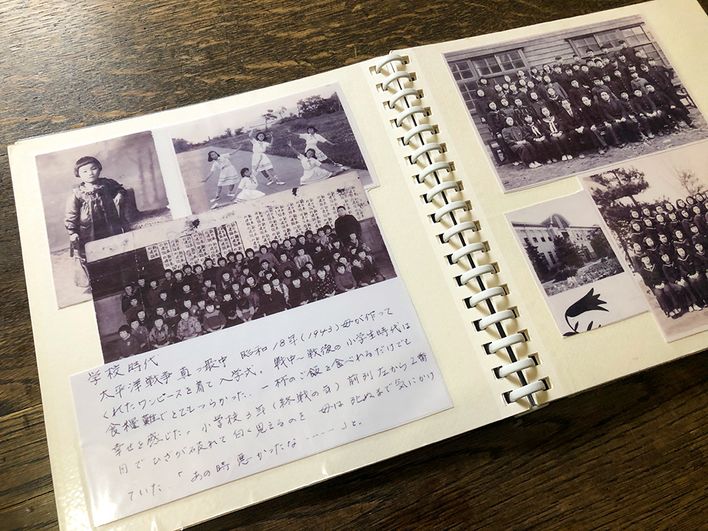 学校時代
太平洋戦争真っ最中 昭和18年(1943)母が作って
くれたワンピースを着て入学式。戦中〜戦後の小学生時代は
食糧難でとてもつらかった。一杯のご飯を食べれるだけでも
幸せを感じた。小学校3年(終戦の年) 前列左から2番
目でひざが破れて白く見えるのを 母は死ぬまで気にかけ
ていた。「あの時悪かったな……」と。